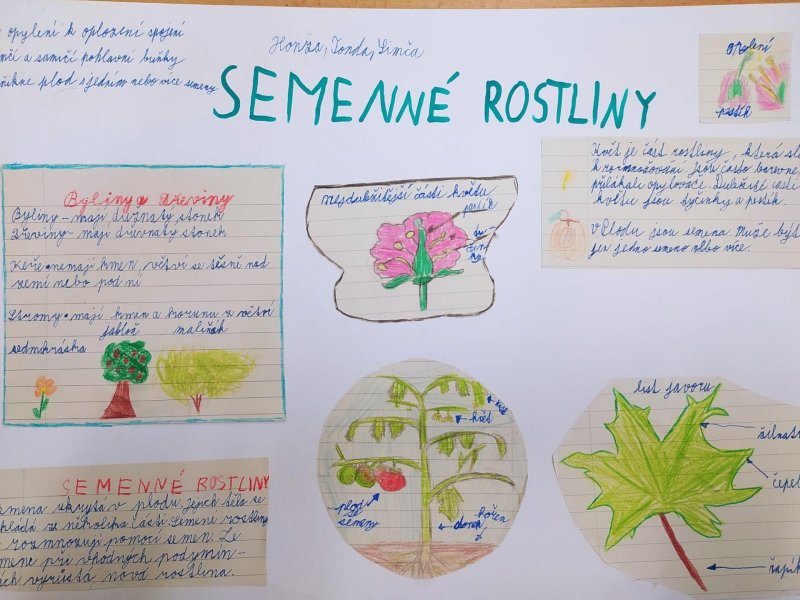 opylení k oplození spojení
a samičí pohlavní buňky
plod s jedním nebo více semeny
Honza, Tonda, Simča
SEMENNÉ ROSTLINY
opylení
pestík
Květ je část rostliny, která
k rozmnožování. Jsou často barevné,
přilákali opylovače. Důležité části
květu jsou tyčinky a pestík.
V Plodu jsou semena může být
jen jedno semeno nebo více.
Byliny a Dřeviny
Byliny - mají dužnatý stonek
Dřeviny - mají dřevnatý stonek
Keře - nemají kmen, větví se těsně nad
zemí nebo pod ní
Stromy - mají kmen a korunu z větví
jabloň
maliňák
sedmikráska
nejdůležitější části květu
pestík
květ
plod se
semeny
kořen
list javoru
žilnat
čepel
řapík
SEMENNÉ ROSTLINY
semena skrytá v plodu jejich tělo se
skládá z několika částí. Semené rostliny
rozmnožují pomocí semen. Ze
semene při vhodných podymín-
kách vyrůstá nová rostlina.